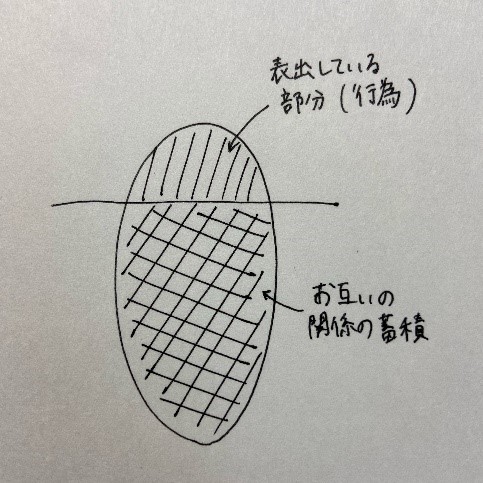 表出している
部分(行為)
お互いの
関係の蓄積